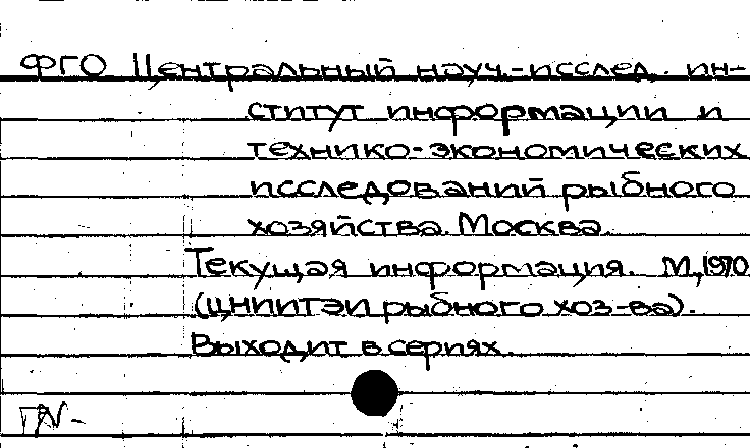 ФГО Центральный науч.-исслед. ин-
ститут информации и
технико-экономических
исследований рыбного
хозяйства. Москва.
Текущая информация. М, 1970
(ЦНИИТЭИ рыбного хоз-ва).
Выходит в сериях.